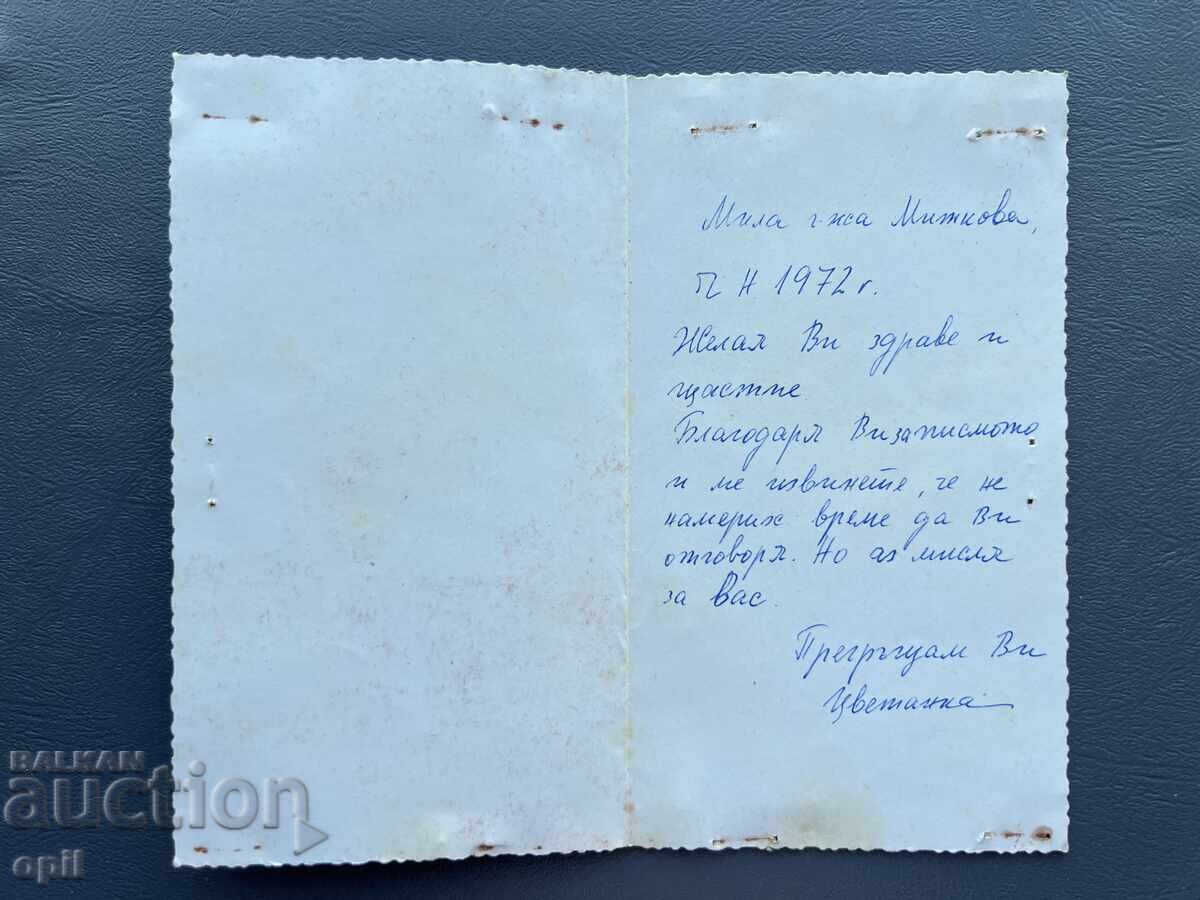 Мила г-жа Мижкова,
ЧН 1972 г.
Желая Ви здраве и
щастие
Благодаря Ви за писмото
и ме извинете, че не
намерих време да Ви
отговоря. Но аз мисля
за Вас.
Прегръщам Ви
Цветанка
BALKAN
auction
opil